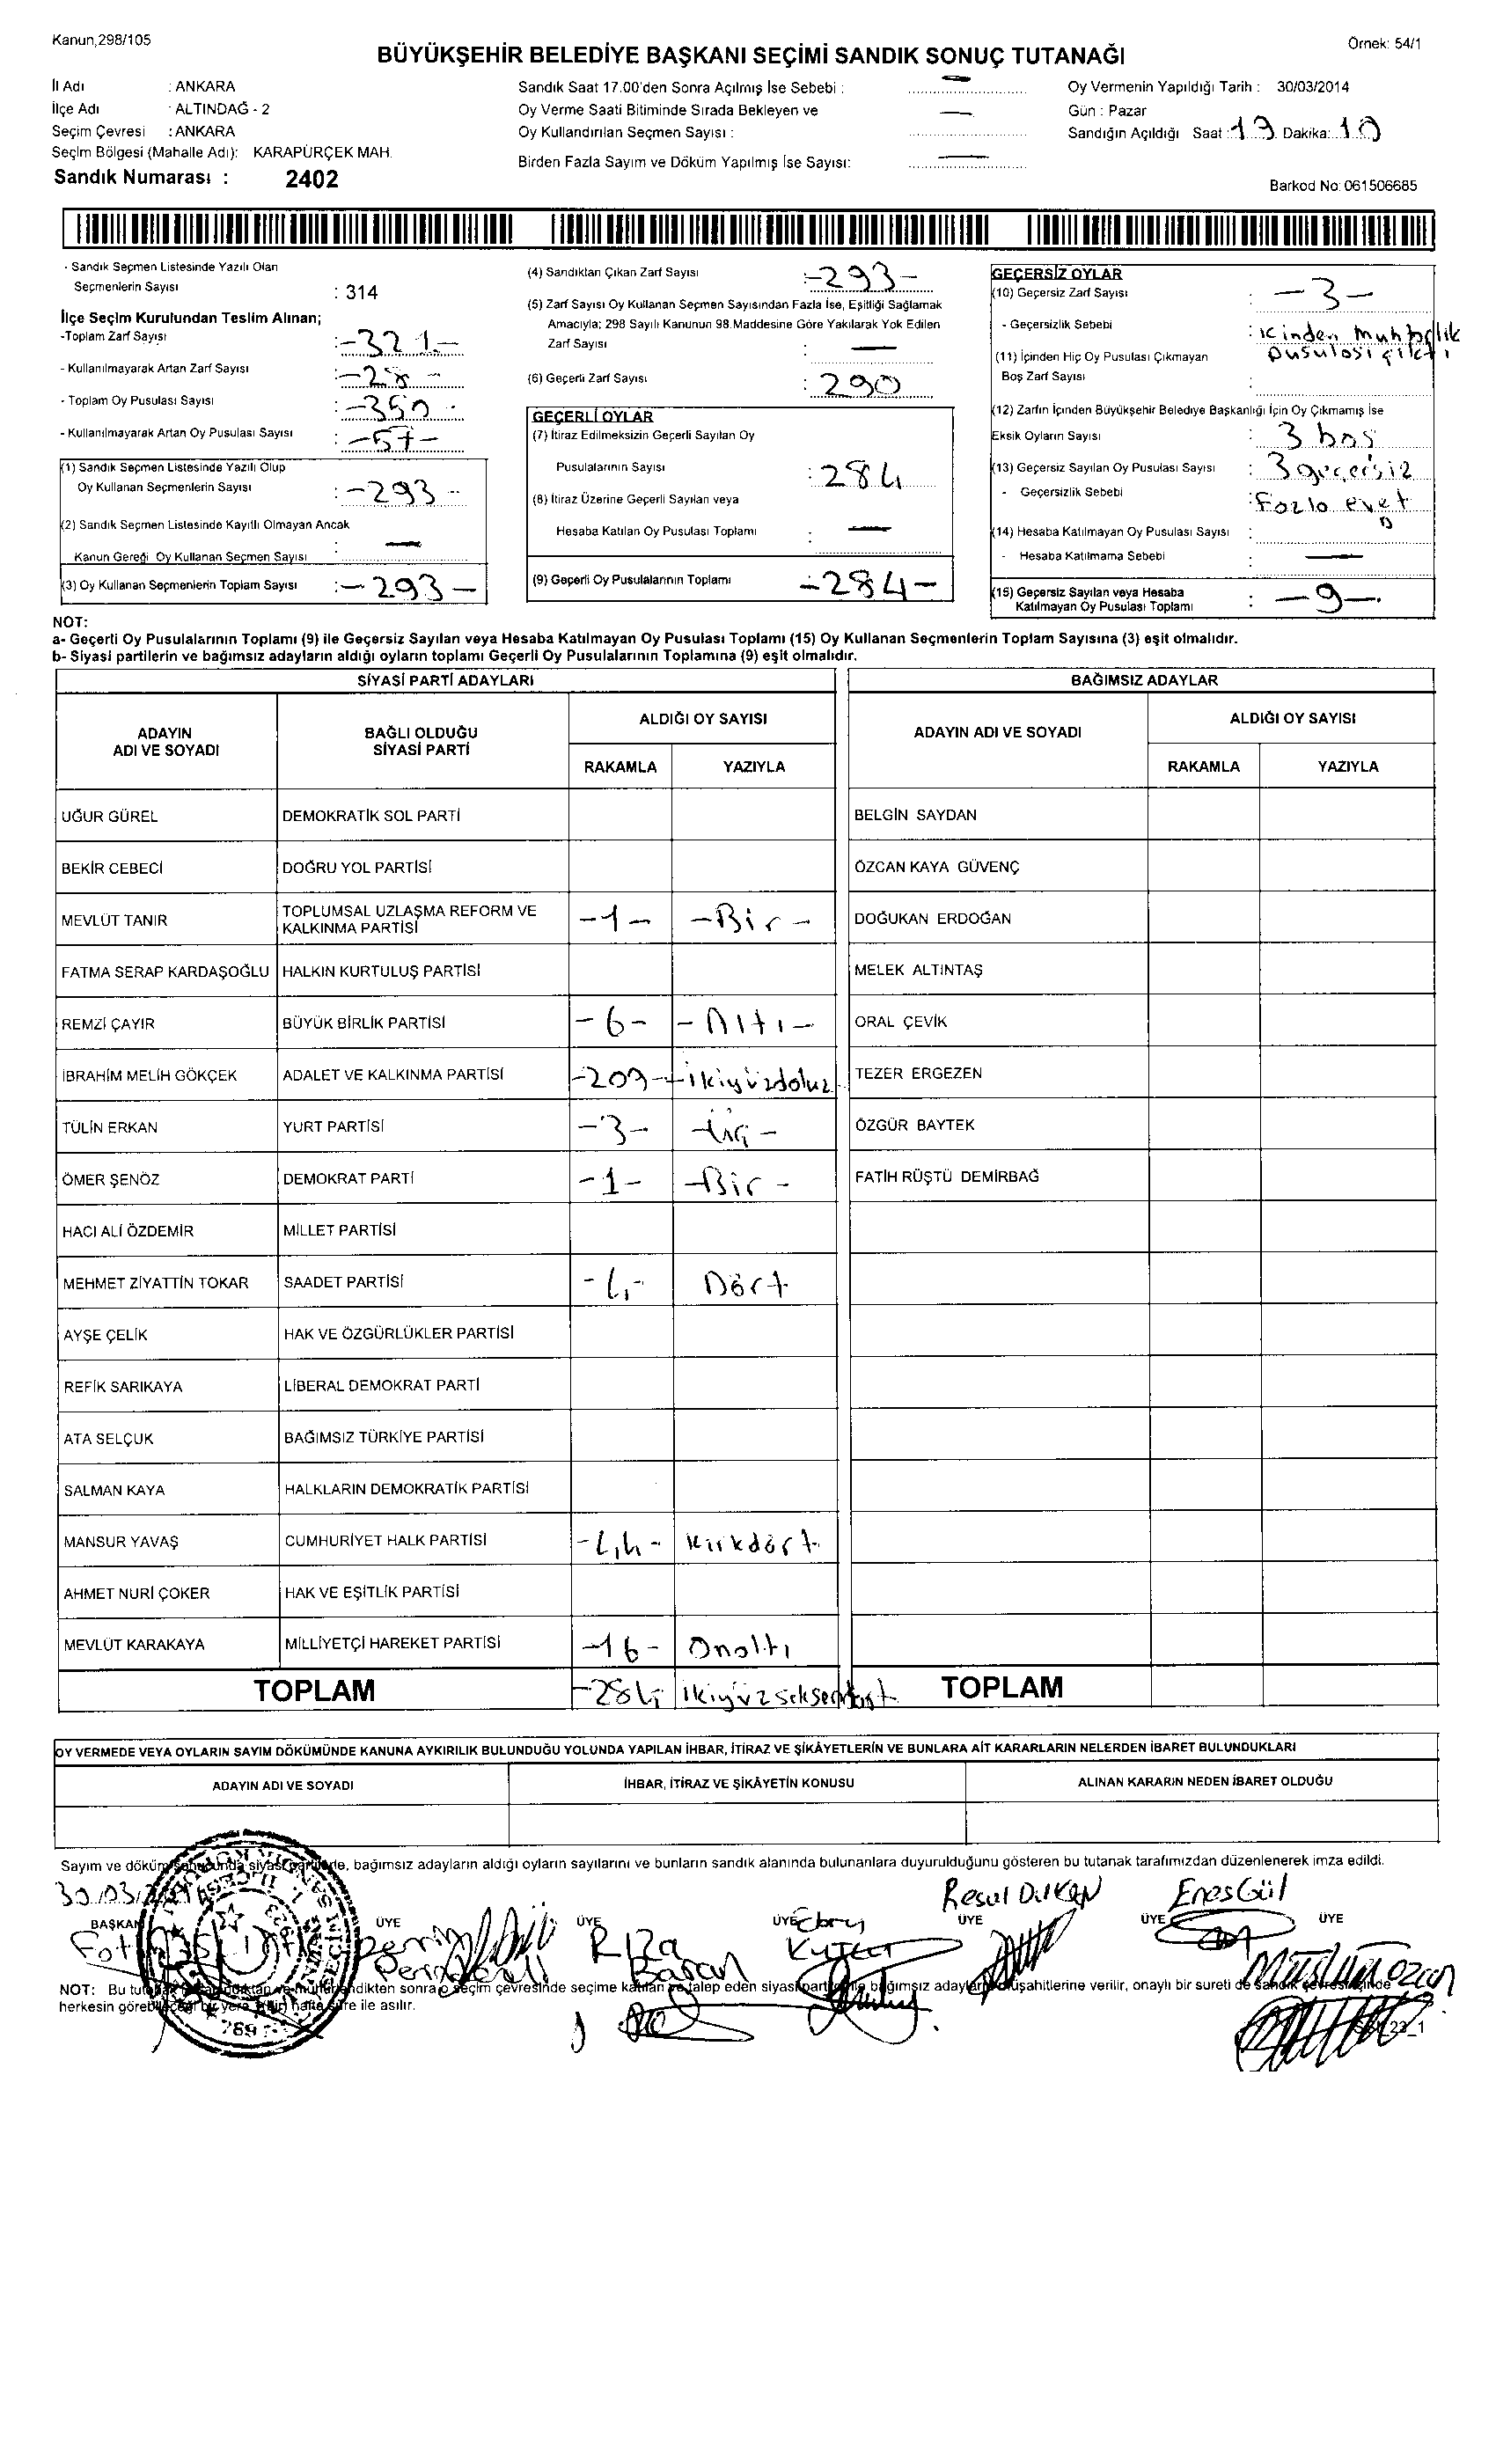 Kanun,298/105
Örnek: 54/1
BÜYÜKŞEHİR BELEDİYE BAŞKANI SEÇİMİ SANDIK SONUÇ TUTANAĞI
İl Adı : ANKARA
İlçe Adı : ALTINDAĞ - 2
Seçim Çevresi : ANKARA
Seçim Bölgesi (Mahalle Adı): KARAPÜRÇEK MAH.
Sandık Numarası : 2402
Sandık Saat 17.00'den Sonra Açılmış İse Sebebi : —
Oy Verme Saati Bitiminde Sırada Bekleyen ve
Oy Kullandırılan Seçmen Sayısı : —
Birden Fazla Sayım ve Döküm Yapılmış İse Sayısı: —
Oy Vermenin Yapıldığı Tarih : 30/03/2014
Gün : Pazar
Sandığın Açıldığı Saat : 19 Dakika: 10
Barkod No: 061506685
- Sandık Seçmen Listesinde Yazılı Olan
Seçmenlerin Sayısı : 314
İlçe Seçim Kurulundan Teslim Alınan;
-Toplam Zarf Sayısı : -321-
- Kullanılmayarak Artan Zarf Sayısı : -28-
- Toplam Oy Pusulası Sayısı : -350-
- Kullanılmayarak Artan Oy Pusulası Sayısı : -57-
(1) Sandık Seçmen Listesinde Yazılı Olup
Oy Kullanan Seçmenlerin Sayısı : -293-
(2) Sandık Seçmen Listesinde Kayıtlı Olmayan Ancak
Kanun Gereği Oy Kullanan Seçmen Sayısı : —
(3) Oy Kullanan Seçmenlerin Toplam Sayısı : -293-
(4) Sandıktan Çıkan Zarf Sayısı : -293-
(5) Zarf Sayısı Oy Kullanan Seçmen Sayısından Fazla İse, Eşitliği Sağlamak
Amacıyla; 298 Sayılı Kanunun 98.Maddesine Göre Yakılarak Yok Edilen
Zarf Sayısı : —
(6) Geçerli Zarf Sayısı : 290
GEÇERLİ OYLAR
(7) İtiraz Edilmeksizin Geçerli Sayılan Oy
Pusulalarının Sayısı : 284
(8) İtiraz Üzerine Geçerli Sayılan veya
Hesaba Katılan Oy Pusulası Toplamı : —
(9) Geçerli Oy Pusulalarının Toplamı -284-
GEÇERSİZ OYLAR
(10) Geçersiz Zarf Sayısı : -3-
- Geçersizlik Sebebi : içinden muhtarlık
pusulası çıktı
(11) İçinden Hiç Oy Pusulası Çıkmayan
Boş Zarf Sayısı :
(12) Zarfın İçinden Büyükşehir Belediye Başkanlığı İçin Oy Çıkmamış İse
Eksik Oyların Sayısı : 3 boş
(13) Geçersiz Sayılan Oy Pusulası Sayısı : 3 geçersiz
- Geçersizlik Sebebi : Fazla evet
(14) Hesaba Katılmayan Oy Pusulası Sayısı :
- Hesaba Katılmama Sebebi : —
(15) Geçersiz Sayılan veya Hesaba
Katılmayan Oy Pusulası Toplamı : -9-
NOT:
a- Geçerli Oy Pusulalarının Toplamı (9) ile Geçersiz Sayılan veya Hesaba Katılmayan Oy Pusulası Toplamı (15) Oy Kullanan Seçmenlerin Toplam Sayısına (3) eşit olmalıdır.
b- Siyasi partilerin ve bağımsız adayların aldığı oyların toplamı Geçerli Oy Pusulalarının Toplamına (9) eşit olmalıdır.
SİYASİ PARTİ ADAYLARI
ADAYIN ADI VE SOYADI BAĞLI OLDUĞU SİYASİ PARTİ ALDIĞI OY SAYISI
RAKAMLA YAZIYLA
UĞUR GÜREL DEMOKRATİK SOL PARTİ
BEKİR CEBECİ DOĞRU YOL PARTİSİ
MEVLÜT TANIR TOPLUMSAL UZLAŞMA REFORM VE KALKINMA PARTİSİ -1- -Bir-
FATMA SERAP KARDAŞOĞLU HALKIN KURTULUŞ PARTİSİ
REMZİ ÇAYIR BÜYÜK BİRLİK PARTİSİ -6- -Altı-
İBRAHİM MELİH GÖKÇEK ADALET VE KALKINMA PARTİSİ -209- ikiyüzdokuz
TÜLİN ERKAN YURT PARTİSİ -3- -üç-
ÖMER ŞENÖZ DEMOKRAT PARTİ -1- -Bir-
HACI ALİ ÖZDEMİR MİLLET PARTİSİ
MEHMET ZİYATTİN TOKAR SAADET PARTİSİ -4- Dört
AYŞE ÇELİK HAK VE ÖZGÜRLÜKLER PARTİSİ
REFİK SARIKAYA LİBERAL DEMOKRAT PARTİ
ATA SELÇUK BAĞIMSIZ TÜRKİYE PARTİSİ
SALMAN KAYA HALKLARIN DEMOKRATİK PARTİSİ
MANSUR YAVAŞ CUMHURİYET HALK PARTİSİ -44- kırkdört
AHMET NURİ ÇOKER HAK VE EŞİTLİK PARTİSİ
MEVLÜT KARAKAYA MİLLİYETÇİ HAREKET PARTİSİ -16- Onaltı
TOPLAM -284 ikiyüzseksendört
BAĞIMSIZ ADAYLAR
ADAYIN ADI VE SOYADI ALDIĞI OY SAYISI
RAKAMLA YAZIYLA
BELGİN SAYDAN
ÖZCAN KAYA GÜVENÇ
DOĞUKAN ERDOĞAN
MELEK ALTINTAŞ
ORAL ÇEVİK
TEZER ERGEZEN
ÖZGÜR BAYTEK
FATİH RÜŞTÜ DEMİRBAĞ
TOPLAM
OY VERMEDE VEYA OYLARIN SAYIM DÖKÜMÜNDE KANUNA AYKIRILIK BULUNDUĞU YOLUNDA YAPILAN İHBAR, İTİRAZ VE ŞİKÂYETLERİN VE BUNLARA AİT KARARLARIN NELERDEN İBARET BULUNDUKLARI
ADAYIN ADI VE SOYADI İHBAR, İTİRAZ VE ŞİKÂYETİN KONUSU ALINAN KARARIN NEDEN İBARET OLDUĞU
Sayım ve döküm sonucunda siyasi partilerle, bağımsız adayların aldığı oyların sayılarını ve bunların sandık alanında bulunanlara duyurulduğunu gösteren bu tutanak tarafımızdan düzenlenerek imza edildi.
30.03.
Enes Gül
BAŞKAN ÜYE ÜYE ÜYE ÜYE ÜYE ÜYE
Rıza Ebru
NOT: Bu dikten sonra seçim çevresinde seçime katılan ve talep eden siyasi parti ile bağımsız adayların müşahitlerine verilir, onaylı bir sureti de sandık çevresinde
herkesin görebileceği bir yere bir hafta süre ile asılır.